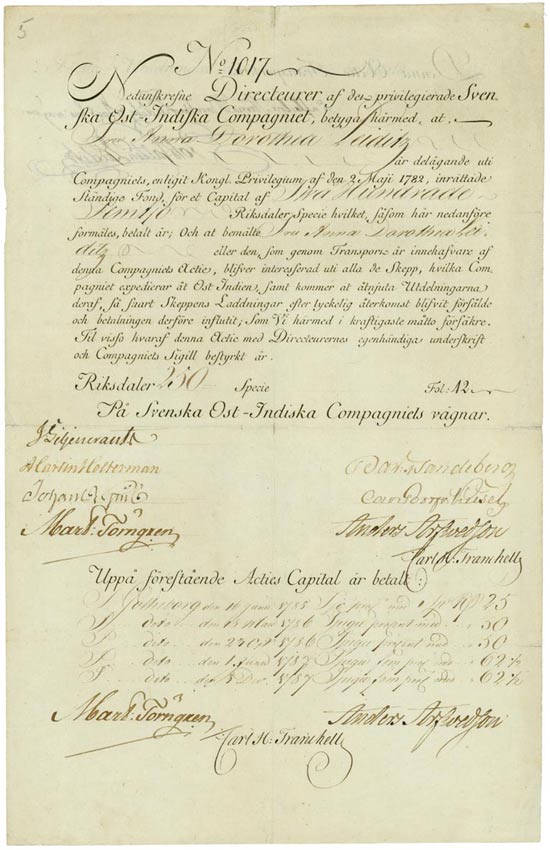 5
No 1017
Nedanskrefne Directeurer af det privilegierade Sven-
ska Ost-Indiska Compagniet, betyga härmed, at
Fru Anna Dorothea Leiditz
är delägande uti
Compagniets, enligit Kongl. Privilegium af den 2 Maji 1782, inrättade
Ständige Fond, för et Capital af Två Hundrade
Femtio Riksdaler Specie hvilket, såsom här nedanföre
formäles, betalt är; Och at bemälte Fru Anna Dorothea Lei-
ditz eller den, som genom Transport är innehafvare af
denna Compagniets Actie, blifver interesserad uti alla de Skepp, hvilka Com-
pagniet expedierar åt Ost-Indien, samt kommer at åtnjuta Utdelningarna
deraf, så snart Skeppens Laddningar efter lyckelig återkomst blifvit försålde
och betalningen derföre influtit; Som Vi härmed i kraftigaste måtto försäkre.
Til visso hvaraf denna Actie med Directeurernes egenhändiga underskrift
och Compagniets Sigill bestyrkt är.
Riksdaler 250 Specie Fol: 42
På Svenska Ost-Indiska Compagniets vägnar.
Martin Holterman
Mart: Törngren Anders Arfwedson
Carl H: Tranchell
Uppå förestående Acties Capital är betalt:
Götheborg den 16 Junii 1785 Tio proc: med 25
dito den 1786 Tjugu procent med 50
dito den 23 Oct 1786 Tjugu procent med 50
dito den 1 Junii 1787 Tjugu fem proc med 62½
dito den Dec. 1787 Tjugu fem proc med 62½
Mart: Törngren Anders Arfwedson
Carl H: Tranchell